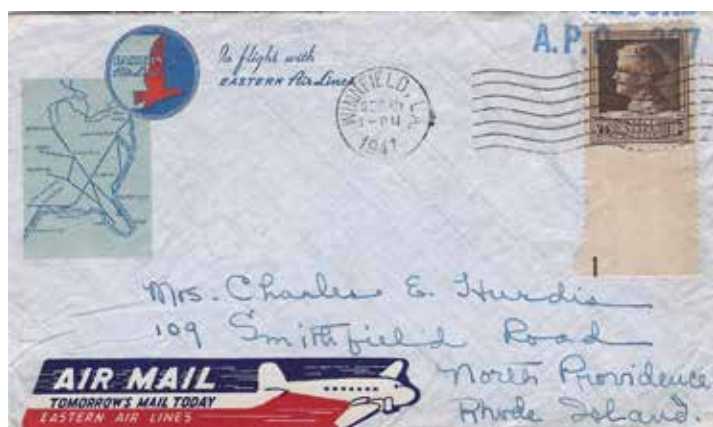 A.P.O.
EASTERN
Air Lines
In flight with
EASTERN Air Lines
WINNFIELD, LA.
1941
Mrs. Charles E. Hurdis
109 Smithfield Road
North Providence
Rhode Island.
AIR MAIL
TOMORROW'S MAIL TODAY
EASTERN AIR LINES